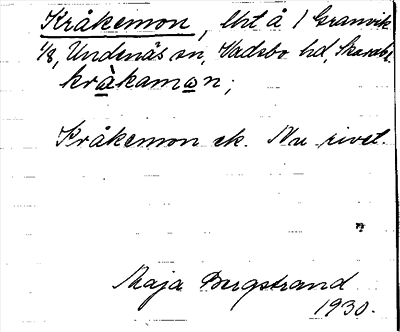 Kråkemon, lht å 1 Granvik
1/8, Undenäs sn, Vadsbo hd, Skarabg
kràkamon;
Kråkemon sk. Nu rivet.
Maja Bergstrand
1930.